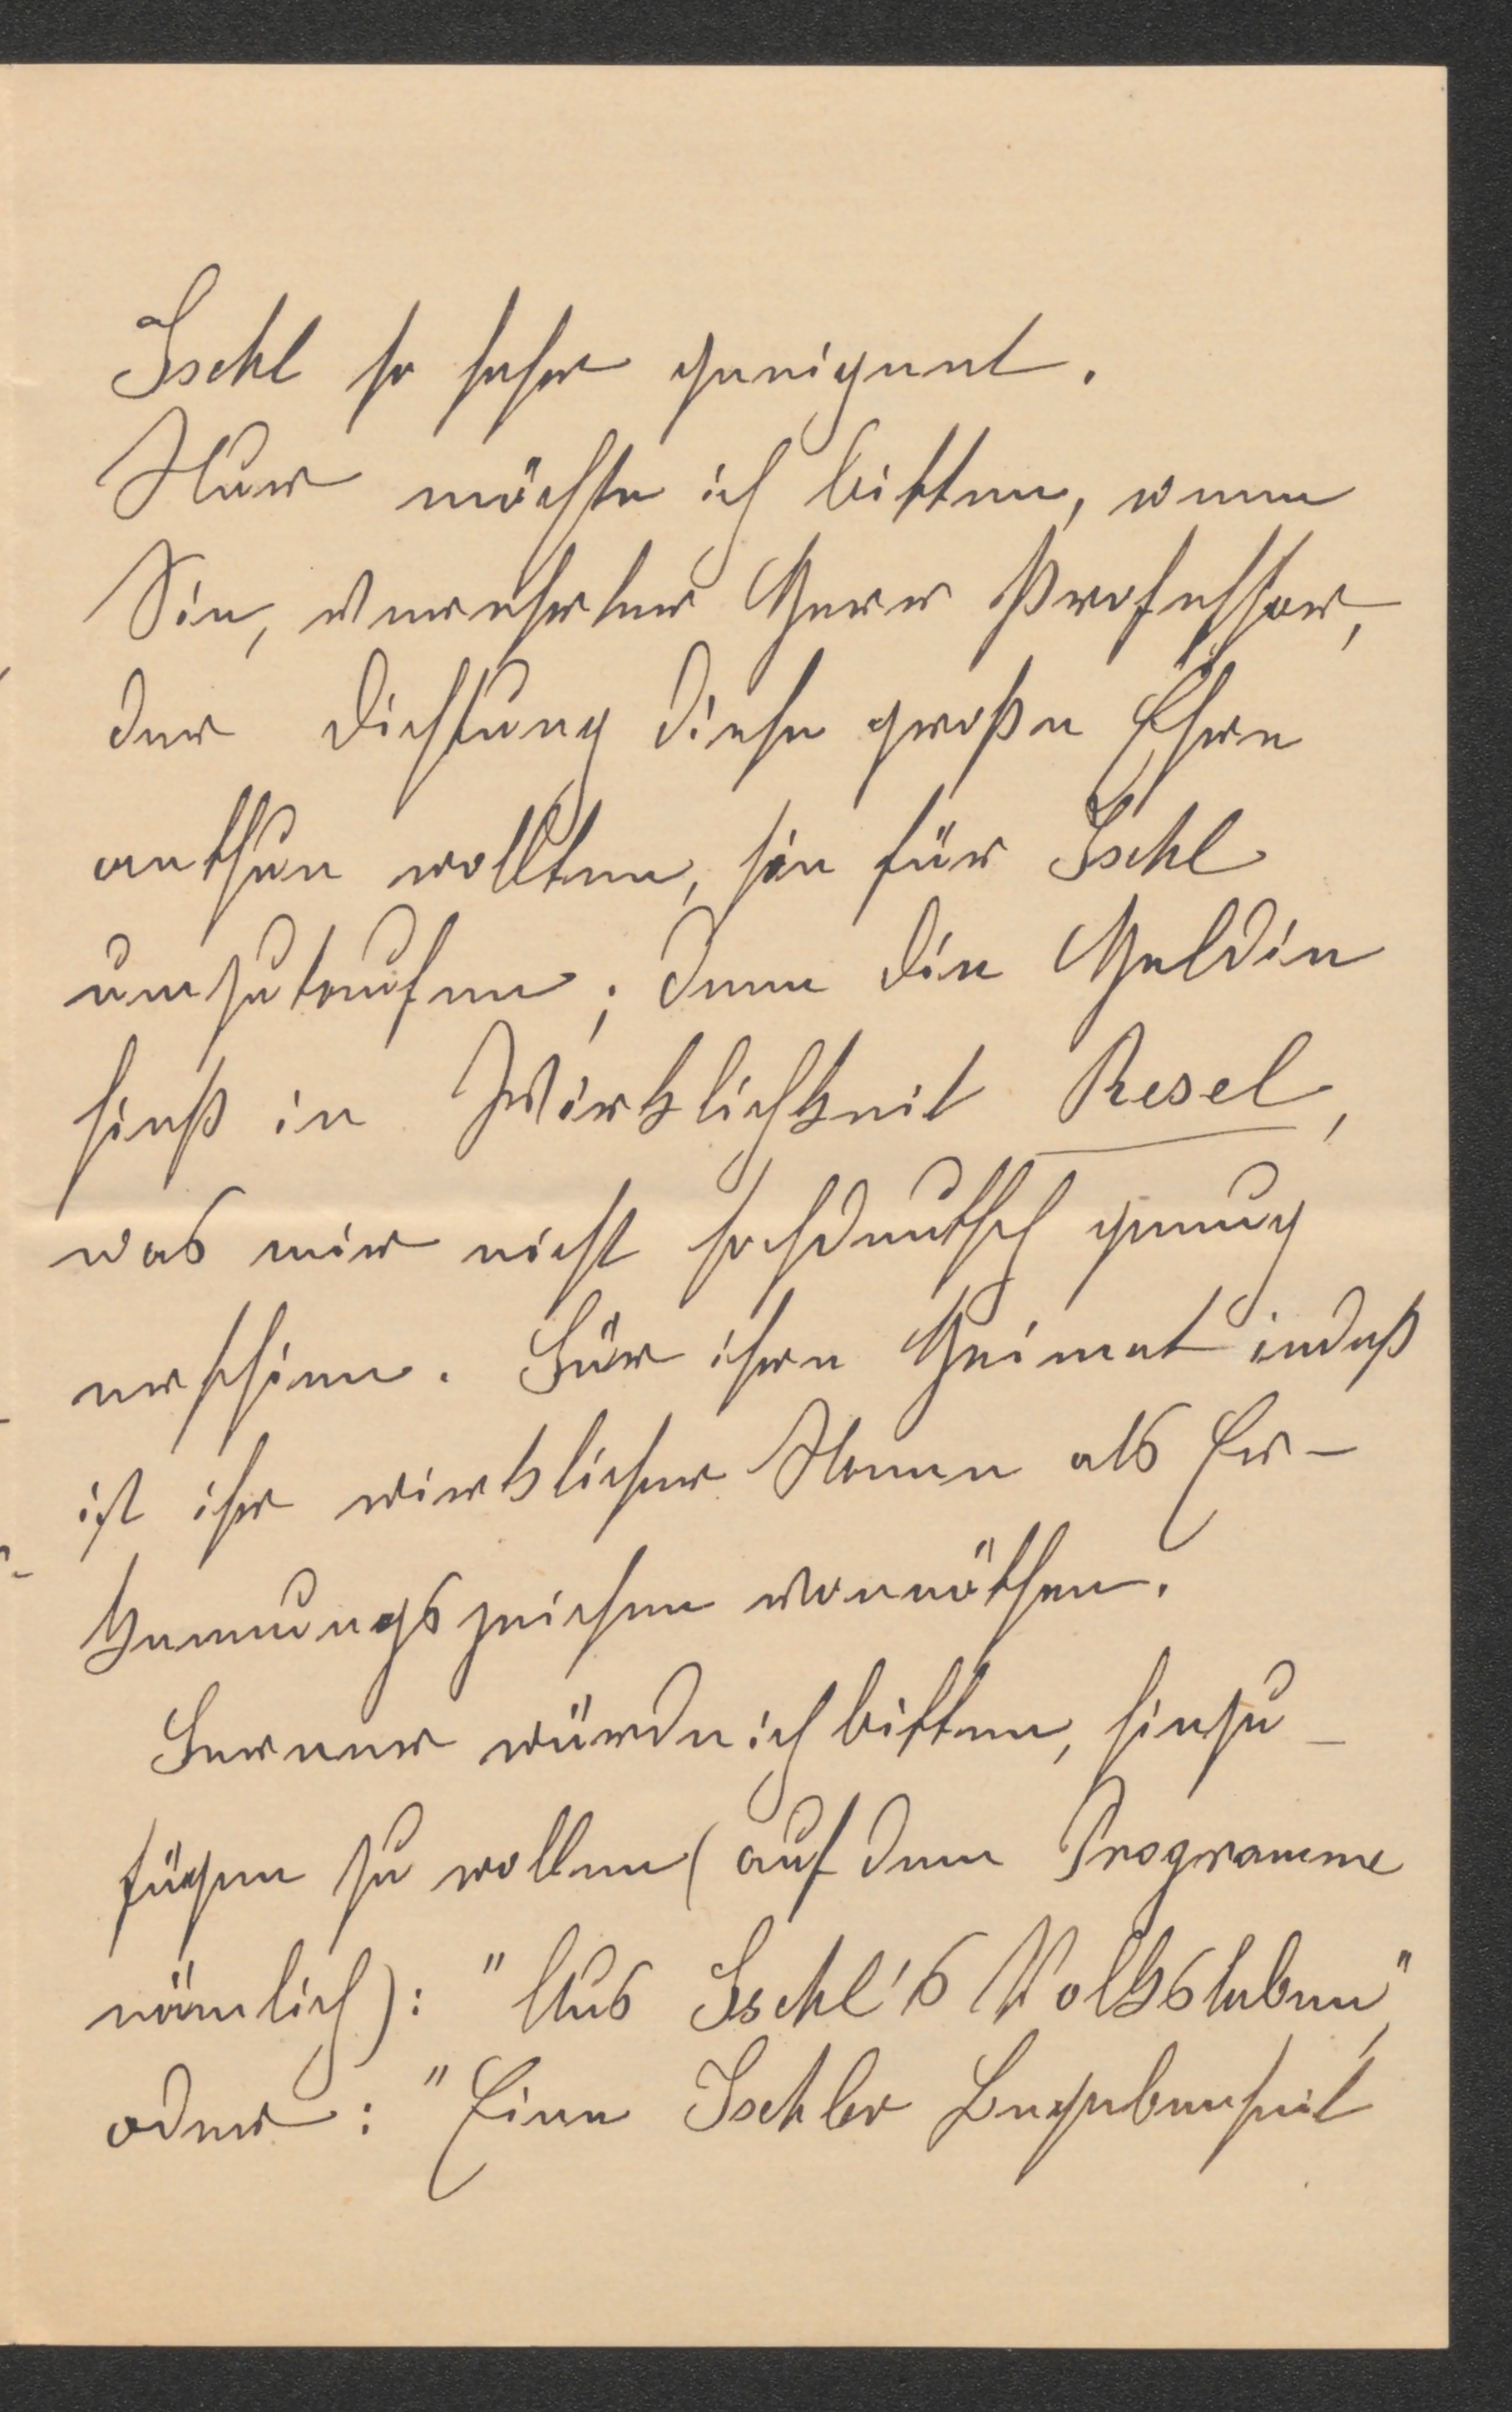 Ischl so sehr geeignet.
Nur möchte ich bitten, wenn
Sie, Verehrter Herr Professor,
der Dichtung diese große Ehre
anthun wollten, sie für Ischl
umzutaufen; denn die Heldin
hieß in Wirklichkeit Resel,
was mir nicht hochdeutsch genug
erschien. Für ihre Heimat indeß
ist ihr wirklicher Name als Er-
kennungszeichen vonnöthen.
Ferner würde ich bitten, hinzu-
fügen zu wollen (auf dem Programme
nämlich): "Aus Ischl's Volksleben",
oder: "Eine Ischler Begebenheit